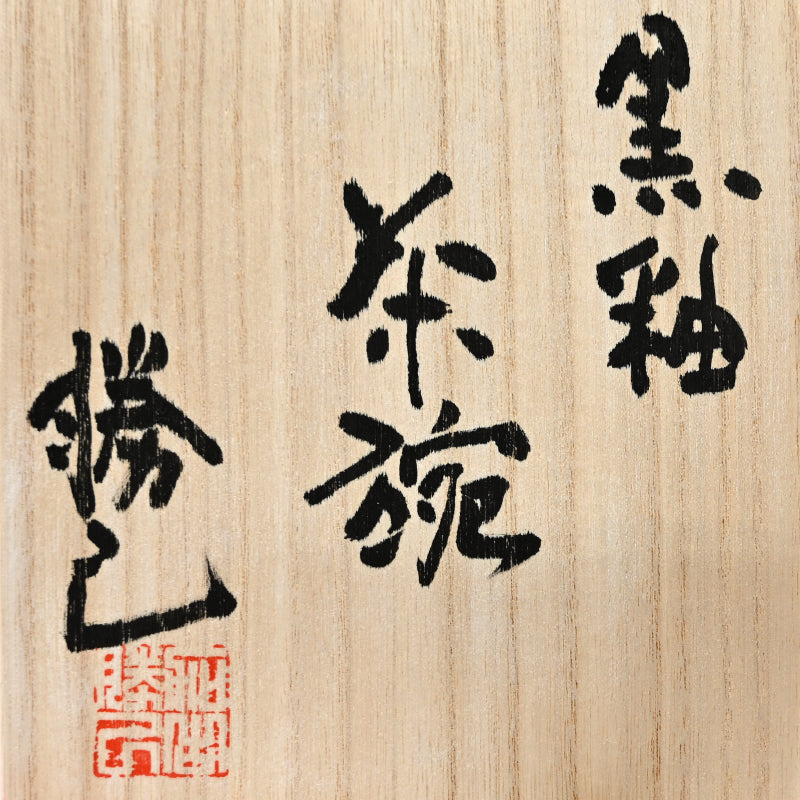 黒釉
茶碗
勝己